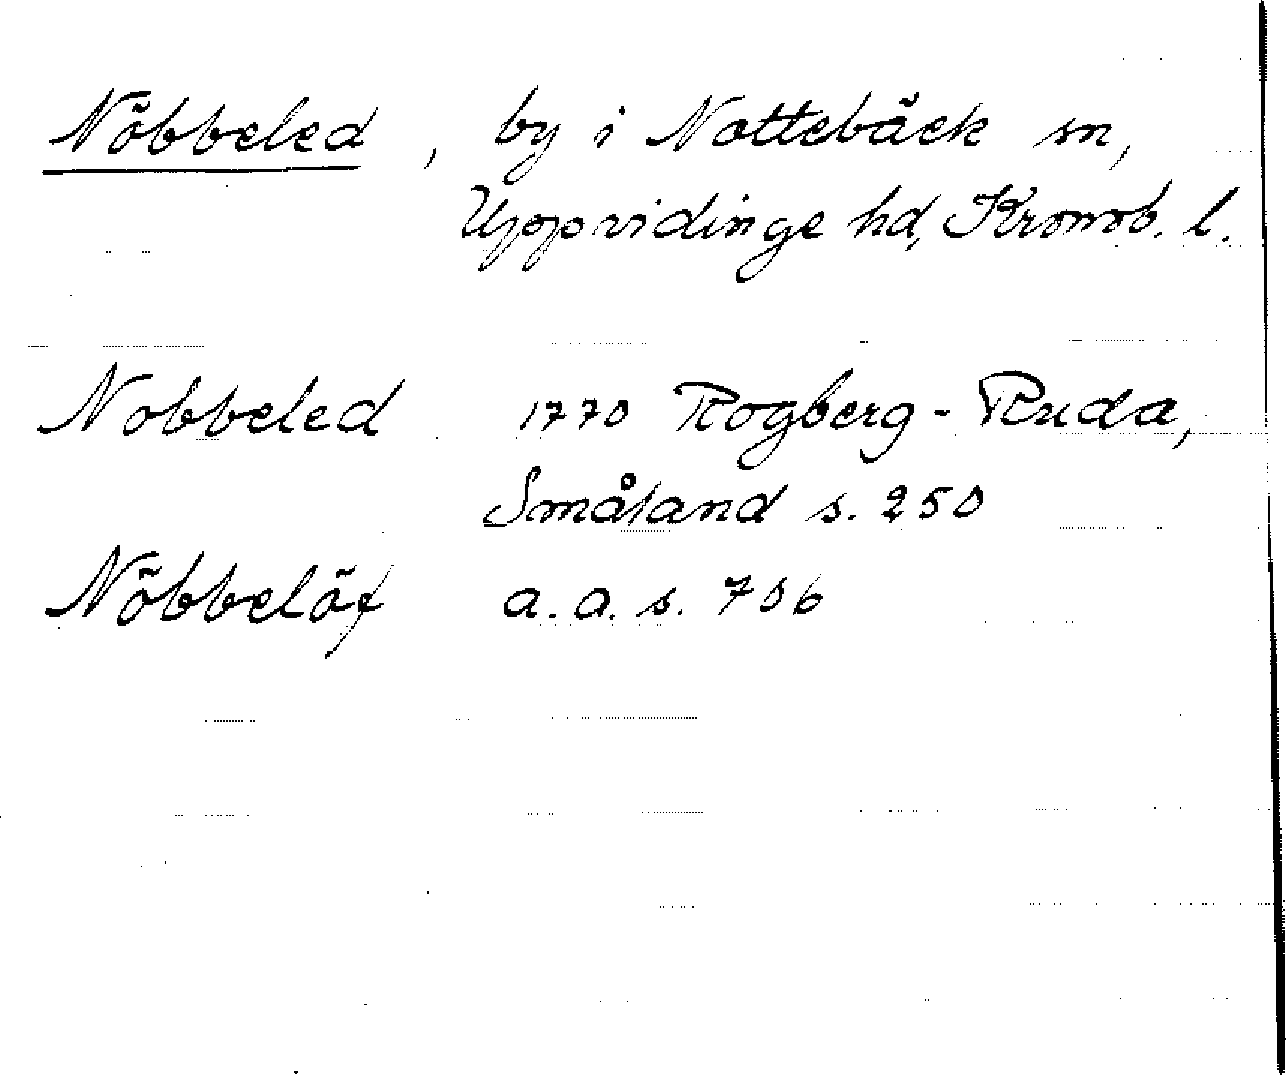 Nöbbeled, by i Nottebäck sn,
Uppvidinge hd, Kronob. l.
Nobbeled 1770 Rogberg-Ruda,
Småland s. 250
Nöbbelöf a. a. s. 706